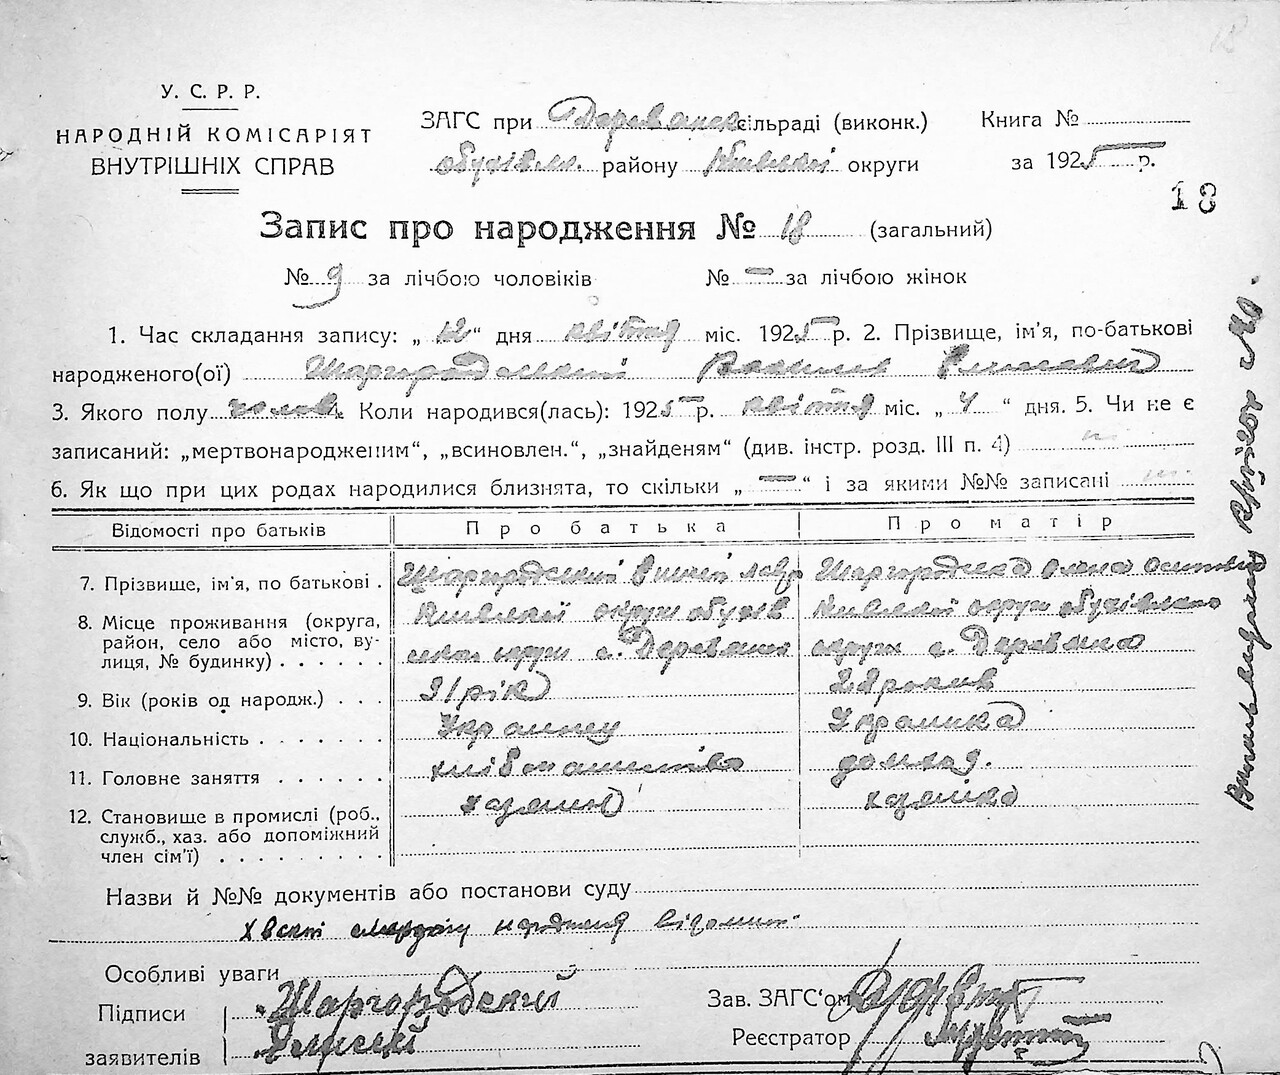 У. С. Р. Р.
НАРОДНІЙ КОМІСАРІЯТ
ВНУТРІШНІХ СПРАВ
ЗАГС при Деревянск сільраді (виконк.)
Обухівськ. району Київської округи
Книга №
за 1925 р.
18
Запис про народження № 18 (загальний)
№ 9 за лічбою чоловіків № — за лічбою жінок
1. Час складання запису: „12“ дня квітня міс. 1925 р. 2. Прізвище, ім'я, по-батькові
народженого(ої) Шаргородський
3. Якого полу чолов. Коли народився(лась): 1925 р. квітня міс. „4“ дня. 5. Чи не є
записаний: „мертвонародженим“, „всиновлен.“, „знайденям“ (див. інстр. розд. III п. 4) ні
6. Як що при цих родах народилися близнята, то скільки „—“ і за якими №№ записані
Відомості про батьків Про батька Про матір
7. Прізвище, ім'я, по батькові . Шаргородський Шаргородска Олена
8. Місце проживання (округа, район, село або місто, вулиця, № будинку) . . . . . . Київської округи с. Деревяна Київської округи с. Деревяна
9. Вік (років од народж.) . . . 31 рік 28 років
10. Національність . . . . . . . Украинец Украинка
11. Головне заняття . . . . . . хлібопашество домход.
12. Становище в промислі (роб., служб., хаз. або допоміжний член сім'ї) . . . . . . . . . хазяин хазяйка
Назви й №№ документів або постанови суду
народженя
Особливі уваги
Підписи
заявителів
Шаргородский
Елисей
Зав. ЗАГС'ом
Реєстратор